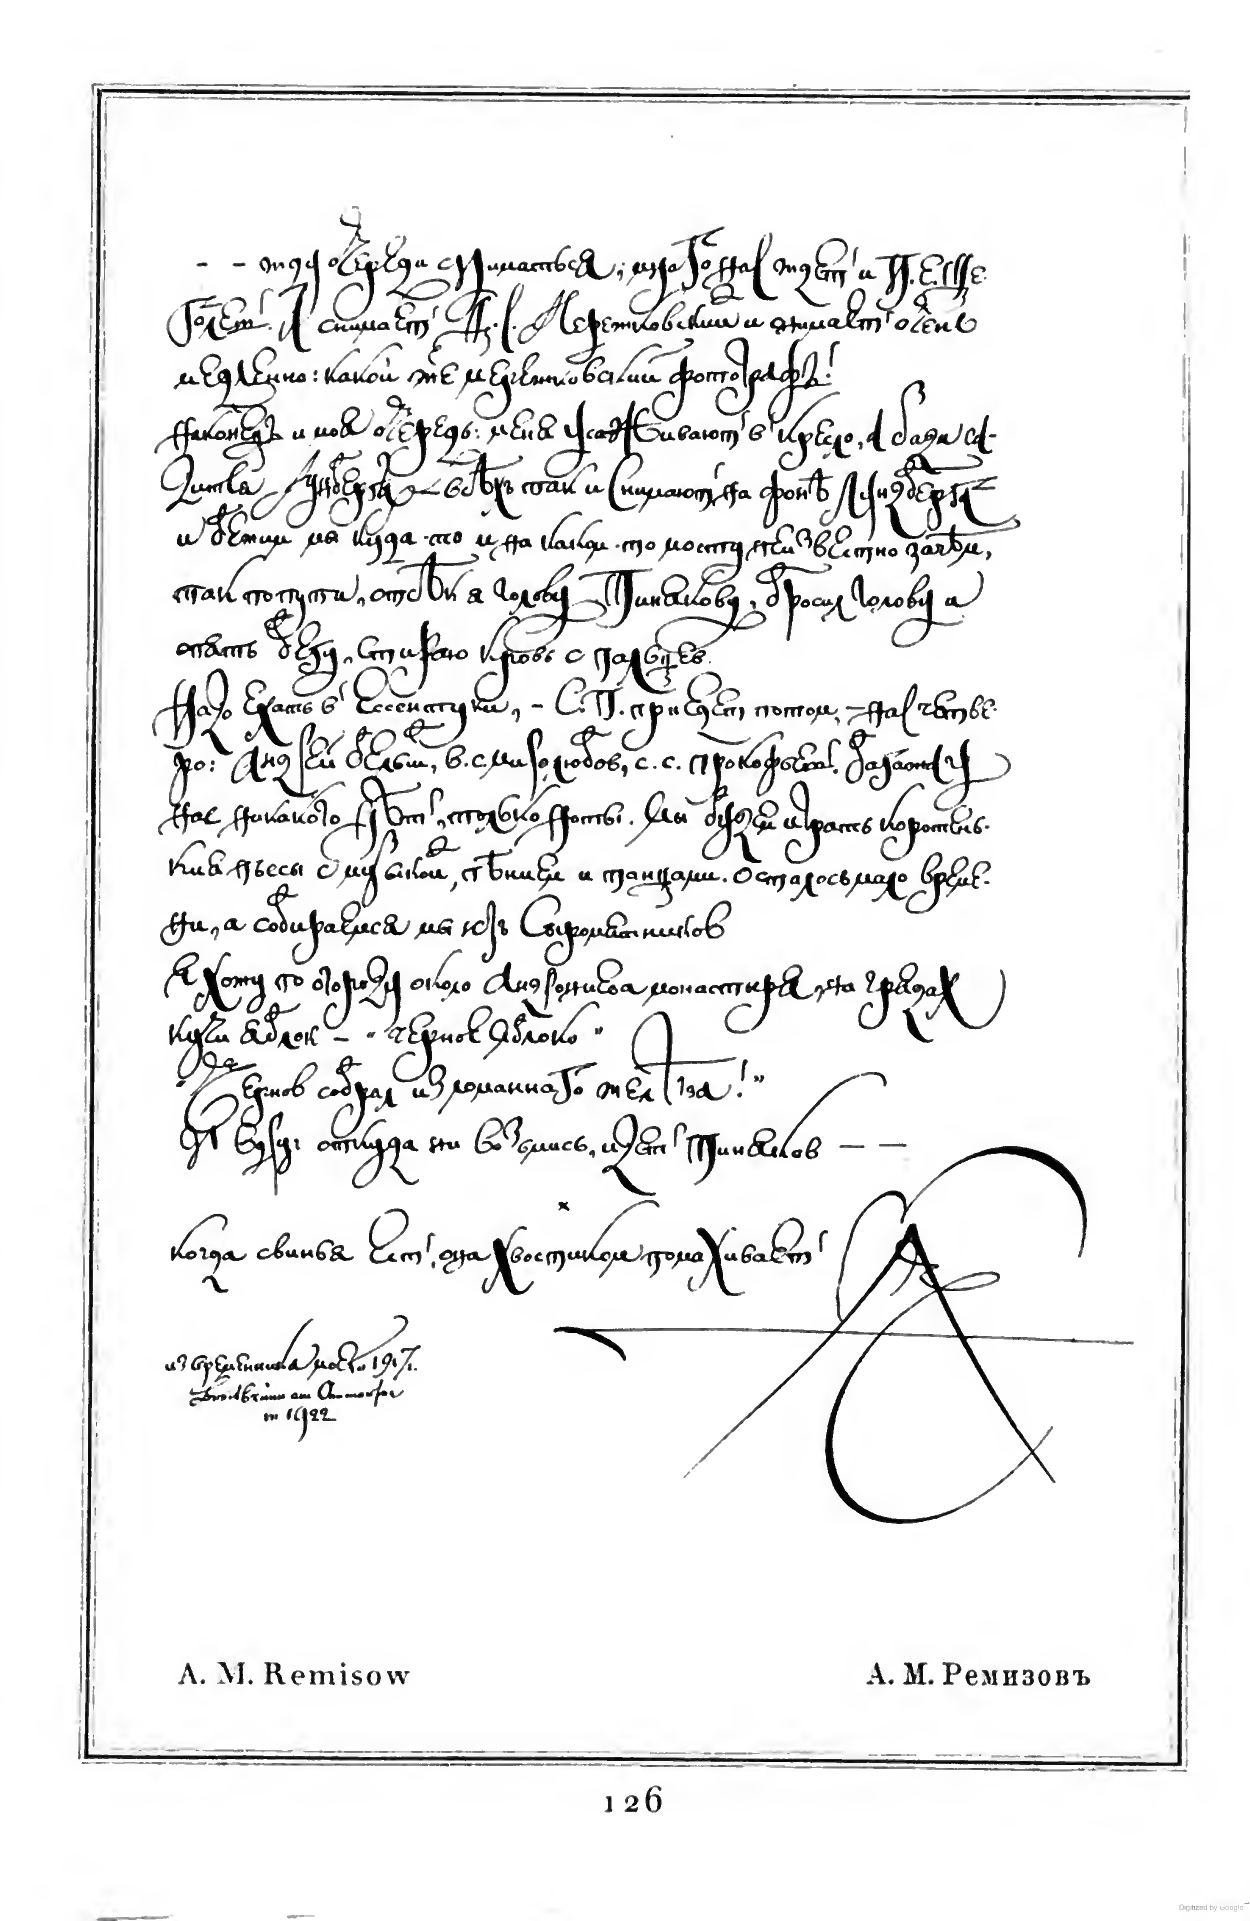 – – жду очереди сниматься; много нас ждет и П. Е. Ще
голев. А снимает Д. С. Мережковский и снимает очень
медленно: какой же мережковский фотографъ!
Наконецъ и моя очередь: меня усаживают в кресло, а сзади са-
дится
и бежим мы куда-то и на каком-то мосту неизвестно зачѣм,
так по пути, отсѣк я голову Пинякову, бросил голову и
опять бегу, стираю кровь с пальцев.
Надо ехать в Ессентуки, – С. П. приедет потом, – нас четве-
ро: Андрей Белый, в. с. миролюбов, с. с. прокофьев.
нас никакого нѣт, только ноты. Мы будем играть коротень-
кия пьесы с музыкой, пѣнием и танцами. Осталось мало време-
ни, а собираемся мы къ Сыромятников
я хожу по огороду около Андрониева монастыря, на грядах
кучи яблок – „чернов яблоко"
„Чернов собрал из романнаго желѣза!"
И вдруг откуда ни возьмись, идет Пиняков – –
×
когда свинья ест, она хвостиком помахивает
из временника 1917 г.
Breitbrunn am Ammersee
in 1922
A. M. Remisow
А. М. Ремизовъ
126
Digitized by Google